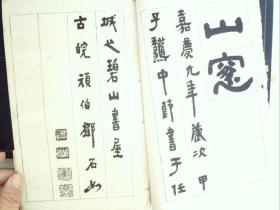 山窻
嘉慶九年歲次甲
子中節書于任
城之碧山書屋
古皖頑伯鄧石如